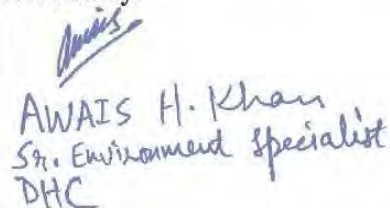 Awais
AWAIS H. Khan
Sr. Environment Specialist
DHC